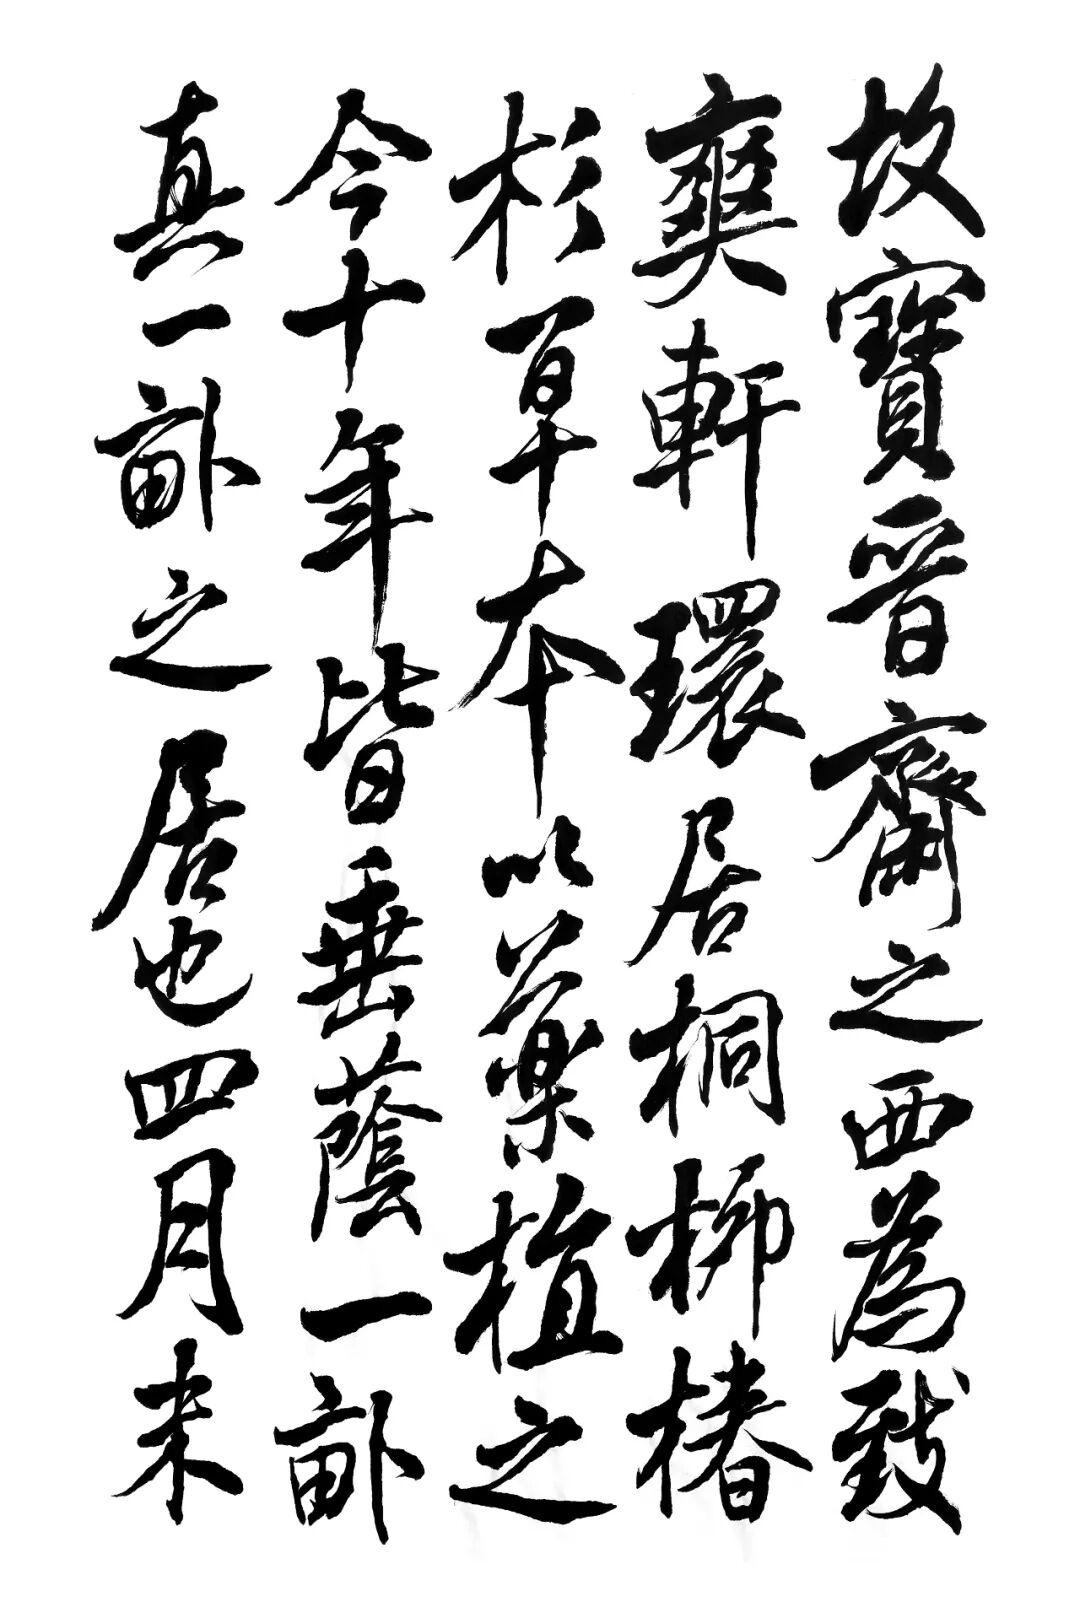 故寶晉齋之西為致
爽軒環居桐柳椿
杉百本以藥植之
今十年皆垂蔭一畝
真一畝之居也四月末